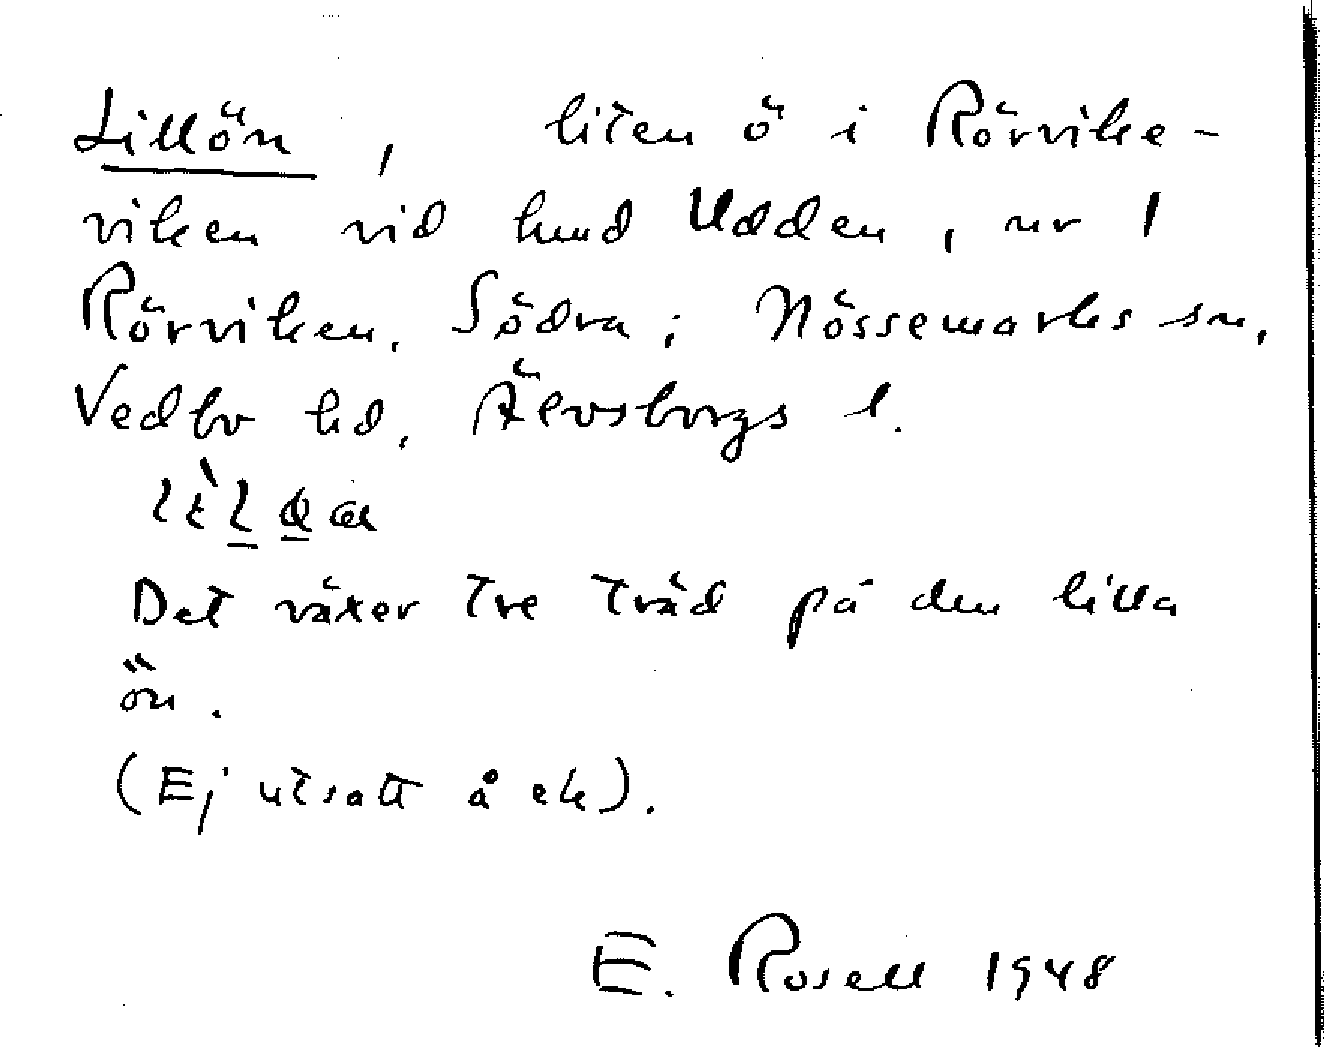 Lillön, liten ö i Rörvike-
viken vid hmd Udden, nr 1
Rörviken, Södra; Nössemarks sn,
Vedbo hd, Älvsborgs l.
Det växer tre träd på den lilla
ön.
(Ej utsatt å ek).
E. Rosell 1948